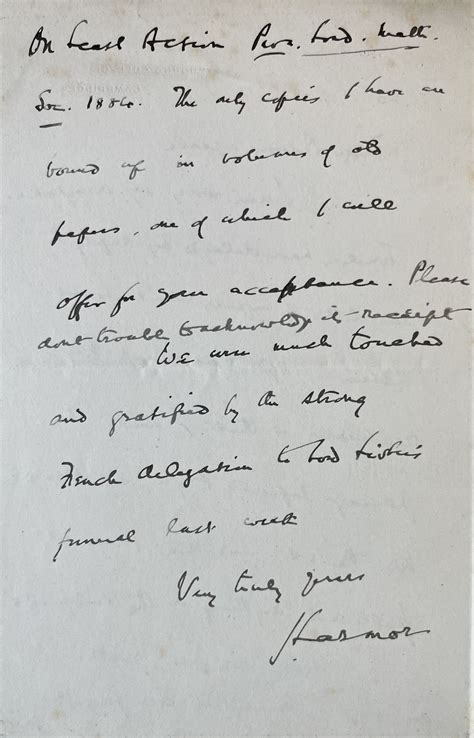 On Least Action Proc. Lond. Math.
Soc. 1884. The only copies I have are
bound up in volumes of old
papers, one of which I will
offer for your acceptance. Please
dont trouble to acknowledge its receipt
We were much touched
and gratified by the strong
French delegation to Lord
funeral last week
Very truly yours
J Larmor